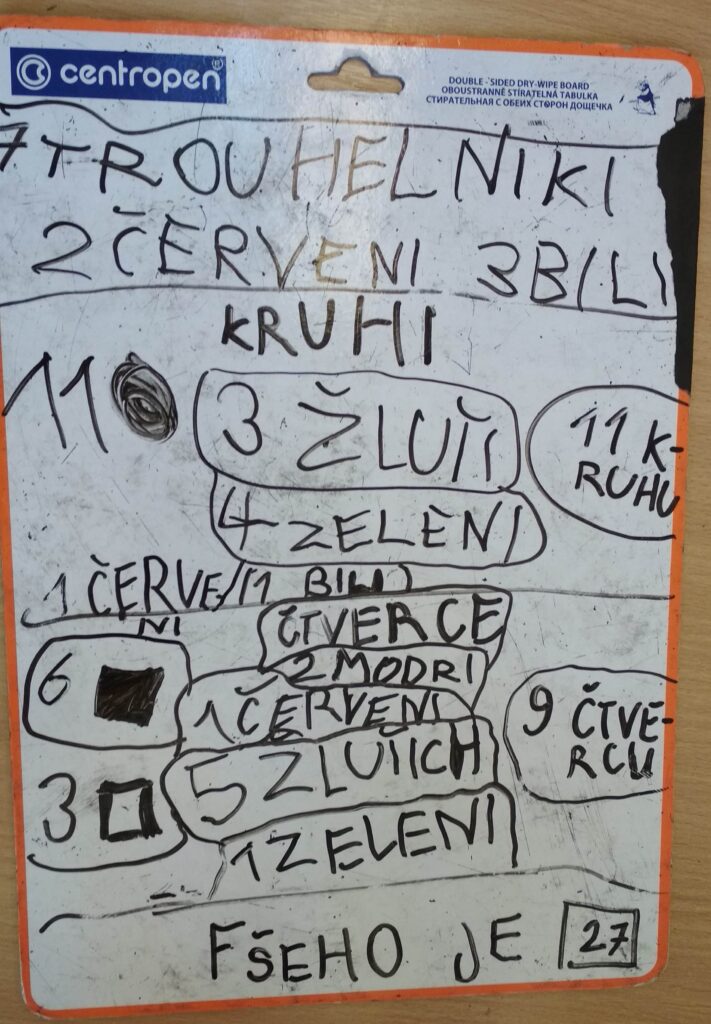 centropen®
DOUBLE - SIDED DRY-WIPE BOARD
OBOUSTRANNĚ STÍRATELNÁ TABULKA
СТИРАТЕЛЬНАЯ С ОБЕИХ СТОРОН ДОЩЕЧКА
7 TROUHELNIKI
2 ČERVENI 3 BILI
KRUHI
11
3 ŽLUŤI
11 K-
RUHU
4 ZELENI
1 ČERVE/(1 BILI)
NI
ČTVERCE
2 MODRI
6
1 ČERVENI
9 ČTVE-
RCU
5 ZLUTICH
3
1 ZELENI
FŠEHO JE 27